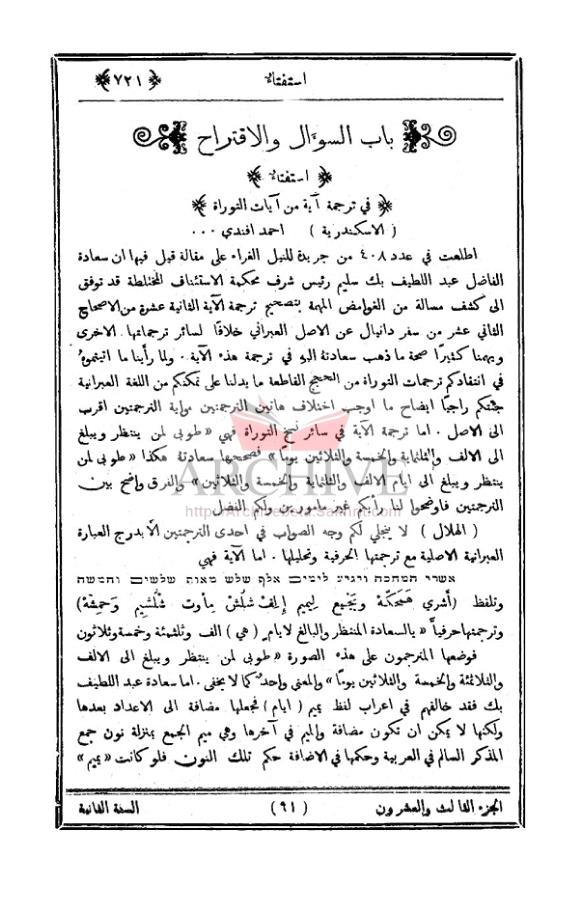 استفتاء ﴿٧٢١﴾
باب السوَّال والاقتراح
﴿ استفتاء ﴾
﴿ في ترجمة آية من آيات التوراة ﴾
( الاسكندرية ) احمد افندي ٠٠٠
اطلعت في عدد ٤٠٨ من جريدة للنيل الغراء على مقالة قيل فيها ان سعادة
الفاضل عبد اللطيف بك سليم رئيس شرف محكمة الاستئناف المختلطة قد توفق
الى كشف مسالة من الغوامض المهمة بتصحيح ترجمة الآية الثانية عشرة من الاصحاح
الثاني عشر من سفر دانيال عن الاصل العبراني خلافًا لسائر ترجماتها الاخرى
ويهمنا كثيرًا صحة ما ذهب سعادتهُ اليهِ في ترجمة هذه الآية . ولما رأينا ما اتيتموهُ
في انتقادكم ترجمات التوراة من الحجج القاطعة ما يدلنا على تمكنكم من اللغة العبرانية
جئتكم راجيًا ايضاح ما اوجب اختلاف هاتين الترجمتين واية الترجمتين اقرب
الى الاصل . اما ترجمة الآية في سائر نسخ التوراة فهي «طوبى لمن ينتظر ويبلغ
الى الالف والثلثماية والخمسة والثلاثين يومًا» فصححها سعادتهُ هكذا «طوبى لمن
ينتظر ويبلغ الى ايام الالف والثلثماية والخمسة والثلاثين» والفرق واضح بين
الترجمتين فاوضحوا لنا رأيكم غير مامورين ولكم الفضل
( الهلال ) لا ينجلي لكم وجه الصواب في احدى الترجمتين الأ بدرج العبارة
العبرانية الاصلية مع ترجمتها الحرفية وتحليلها . اما الآية فهي
אשרי המחכה ויגיע לימים אלף שלש מאות שלשים וחמשה
وتلفظ (أشري
وترجمتها حرفياً «يالسعادة المنتظر والبالغ لايام (هي) الف وثلثمئة وخمسة وثلاثون
فوضعها المترجمون على هذه الصورة «طوبى لمن ينتظر ويبلغ الى الالف
والثلاثمئة والخمسة والثلاثين يومًا» والمعنى واحدٌ كما لا يخفى . اما سعادة عبد اللطيف
بك فقد خالفهم في اعراب لفظ يميم (ايام) فجعلها مضافة الى الاعداد بعدها
ولكنها لا يمكن ان تكون مضافة والميم في آخرها وهي ميم الجمع بمنزلة نون جمع
المذكر السالم في العربية وحكمها في الاضافة حكم تلك النون فلو كانت «يميم»
الجزء الثالث والعشرون (٩١) السنة الثانية
ARCHIVE